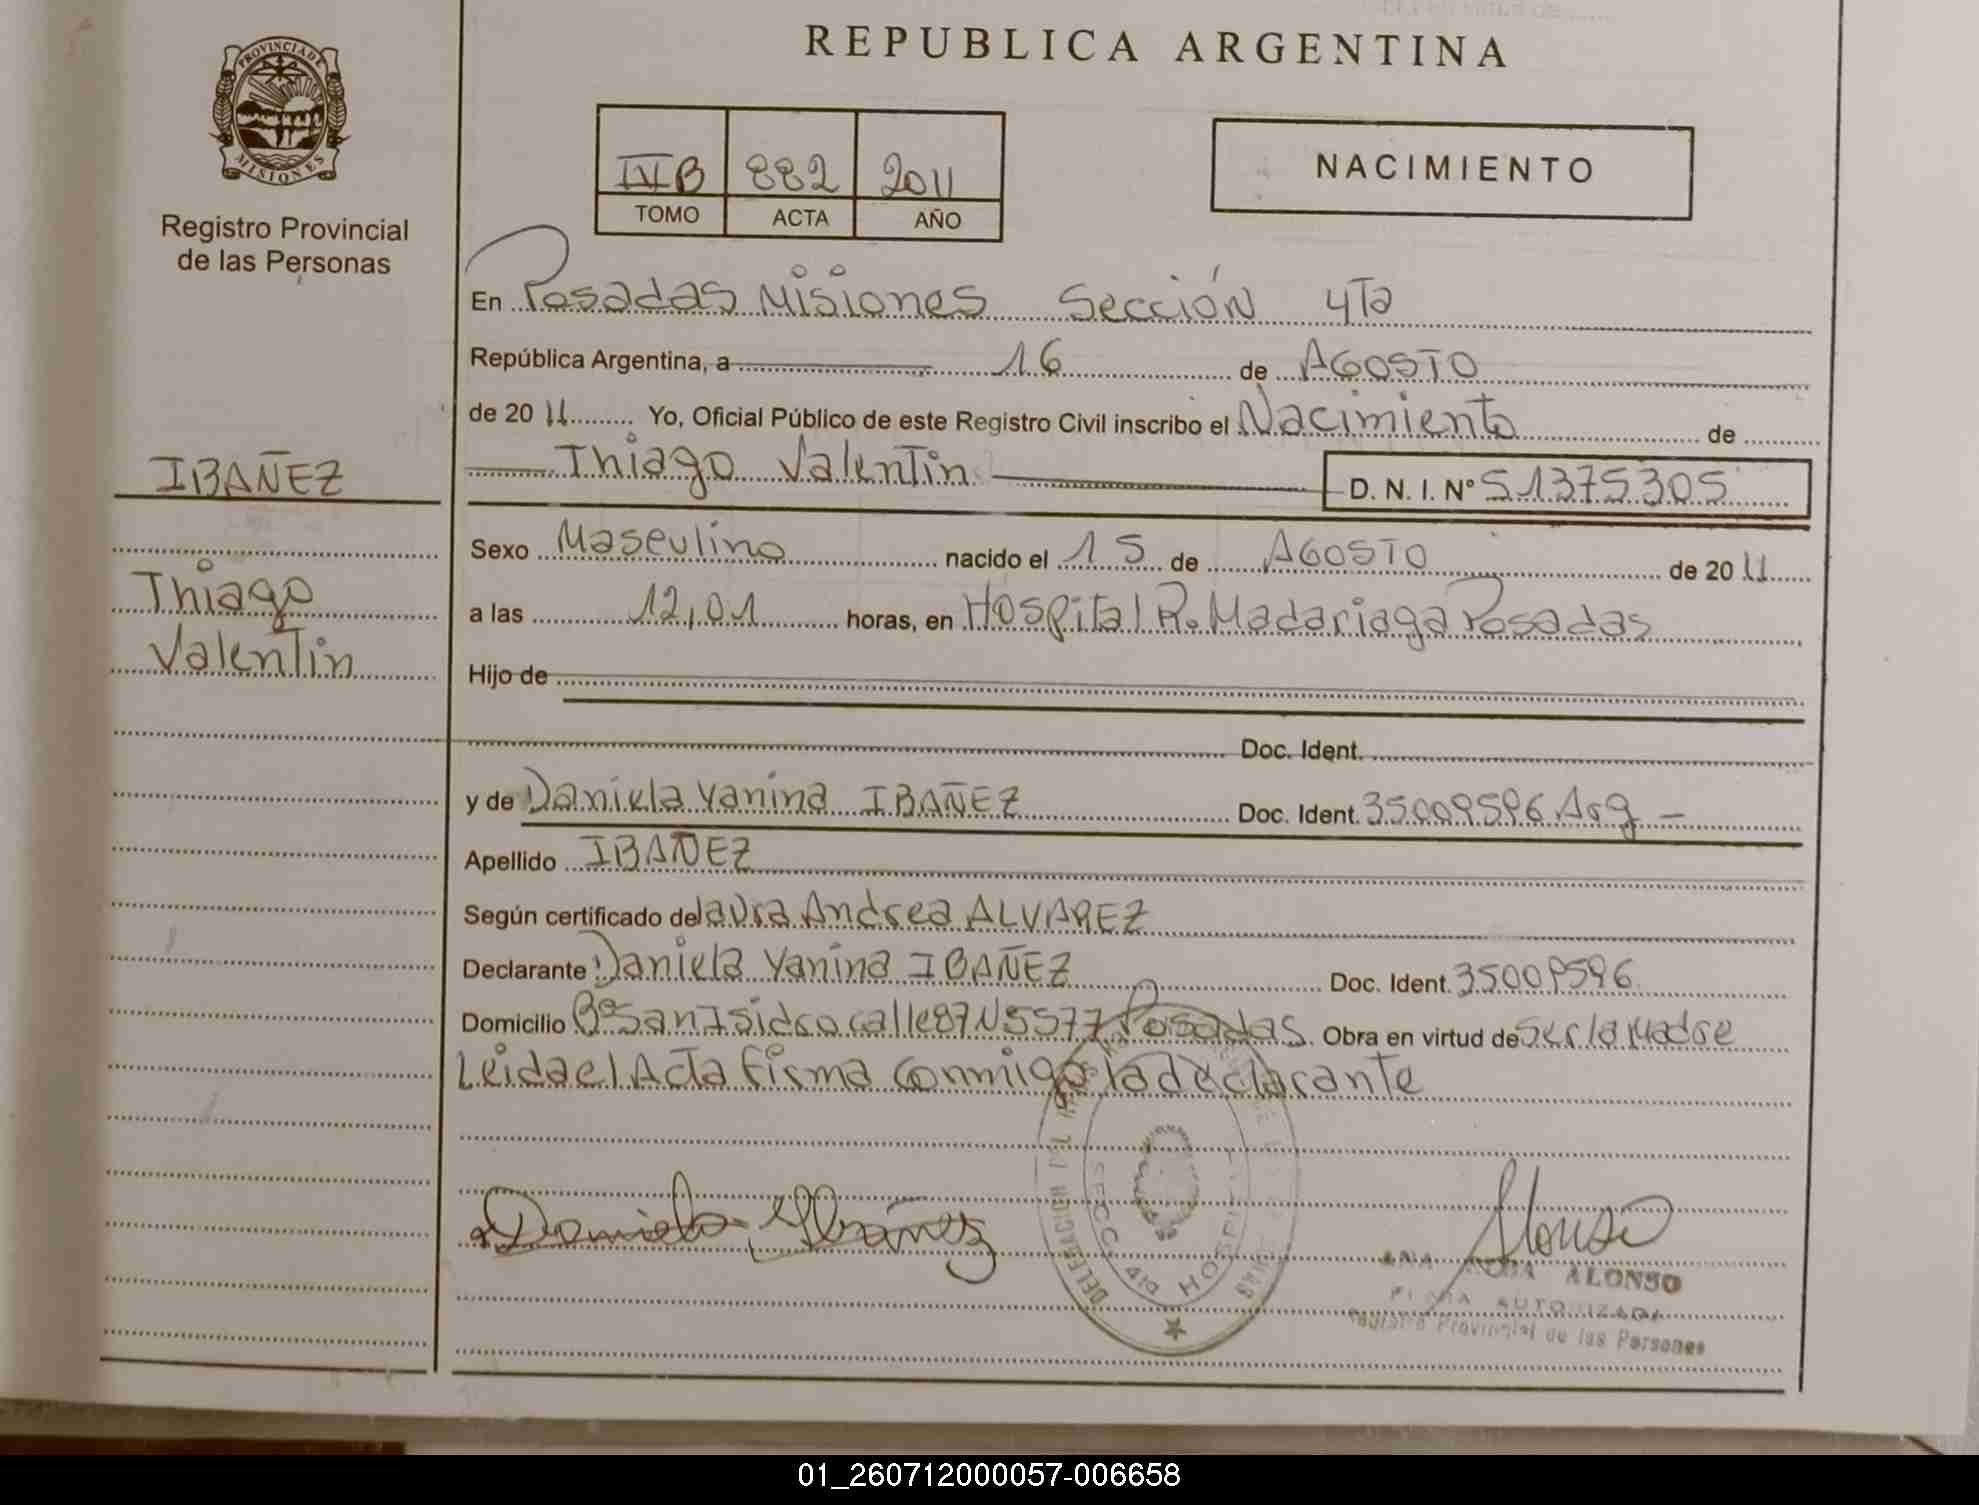 PROVINCIA DE
MISIONES
Registro Provincial
de las Personas
IBAÑEZ
Thiago
Valentin
REPUBLICA ARGENTINA
IVB 882 2011
TOMO ACTA AÑO
NACIMIENTO
En Posadas Misiones Sección 4Ta
República Argentina, a 16 de AGOSTO
de 20 11 Yo, Oficial Público de este Registro Civil inscribo el Nacimiento de
Thiago Valentin D. N. I. N° 51375305
Sexo Masculino nacido el 15 de AGOSTO de 20 11
a las 12,01 horas, en Hospital R. Madariaga Posadas
Hijo de
Doc. Ident.
y de Daniela Yanina IBAÑEZ Doc. Ident. 35009596 Arg –
Apellido IBAÑEZ
Según certificado de laura Andrea ALVAREZ
Declarante Daniela Yanina IBAÑEZ Doc. Ident. 35009596
Domicilio B° San Isidro calle 87 N 5577 Posadas. Obra en virtud de ser la Madre
Leida el Acta firma conmigo la declarante
Daniela Ibáñez
Alonso
DELEGACION
SECC 4ta HOSPITAL
ANA ALONSO
FIRMA AUTORIZADA
Registro Provincial de las Personas
01_260712000057-006658